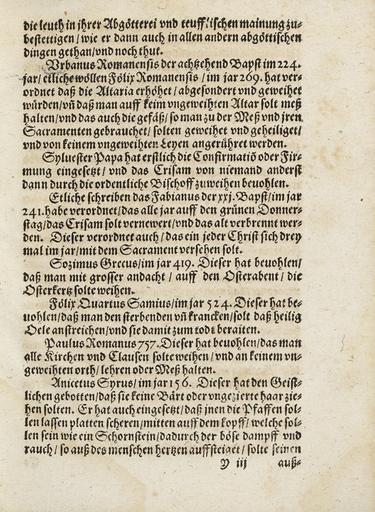 die leuth in jhrer Abgötterei vnd teufflischen mainung zu-
bestettigen / wie er dann auch in allen andern abgöttischen
dingen gethan / vnd noch thut.
Vrbanus Romanensis der achtzehend Bapst im 224.
jar / etliche wöllen Fölix Romanensis / im jar 269. hat ver-
ordnet daß die Altaria erhöhet / abgesondert vnd geweihet
würden / vñ daß man auff keim vngeweihten Altar solt meß
halten / vnd das auch die gefäß / so man zu der Meß vnd jren
Sacramenten gebrauchet / solten geweihet vnd geheiliget /
vnd von keinem vngeweihten Leyen angerühret werden.
Syluester Papa hat erstlich die Confirmatiō oder Fir-
mung eingesetzt / vnd das Crisam von niemand anderst
dann durch die ordentliche Bischoff zuweihen beuohlen.
Etliche schreiben das Fabianus der xxj. Bapst / im jar
241. habe verordnet / das alle jar auff den grünen Donner-
stag / das Crisam solt vernewert / vnd das alt verbrennt wer-
den. Dieser verordnet auch / das ein jeder Christ sich drey
mal im jar / mit dem Sacrament versehen solt.
Sozimus Grecus / im jar 419. Dieser hat beuohlen /
daß man mit grosser andacht / auff den Osterabent / die
Osterkertz solte weihen.
Fölix Quartus Samius / im jar 524. Dieser hat be-
uohlen / daß man den sterbenden vñ krancken / solt daß heilig
Oele anstreichen / vnd sie damit zum tods beraiten.
Paulus Romanus 757. Dieser hat beuohlen / das man
alle Kirchen vnd Clausen solte weihen / vnd an keinem vn-
geweihten orth / lehren oder Meß halten.
Anicetus Syrus / im jar 156. Dieser hat den Geist-
lichen gebotten / daß sie keine Bärt oder vngezierte haar zie-
hen solten. Er hat auch eingesetzt / daß jnen die Pfaffen sol-
len lassen platten scheren / mitten auff dem kopff / welche sol-
len sein wie ein Schornstein / dadurch der böse dampff vnd
rauch / so auß des menschen hertzen auffsteiget / solte seinen
Y iij auß-